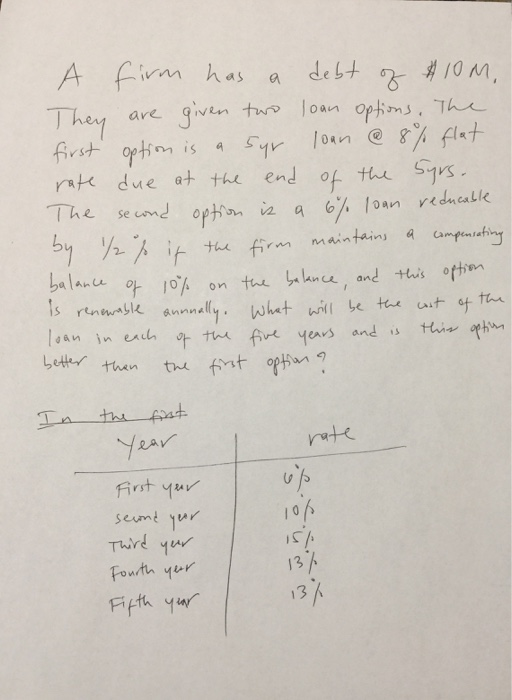 A firm has a debt of $10M.
They are given two loan options. The
first option is a 5yr loan @ 8% flat
rate due at the end of the 5yrs.
The second option is a 6% loan reducable
by 1/2% if the firm maintains a compensating
balance of 10% on the balance, and this option
is renewable annually. What will be the cost of the
loan in each of the five years and is this option
better than the first option?
In the first
Year rate
First year 6%
second year 10%
Third year 15%
Fourth year 13%
Fifth year 13%